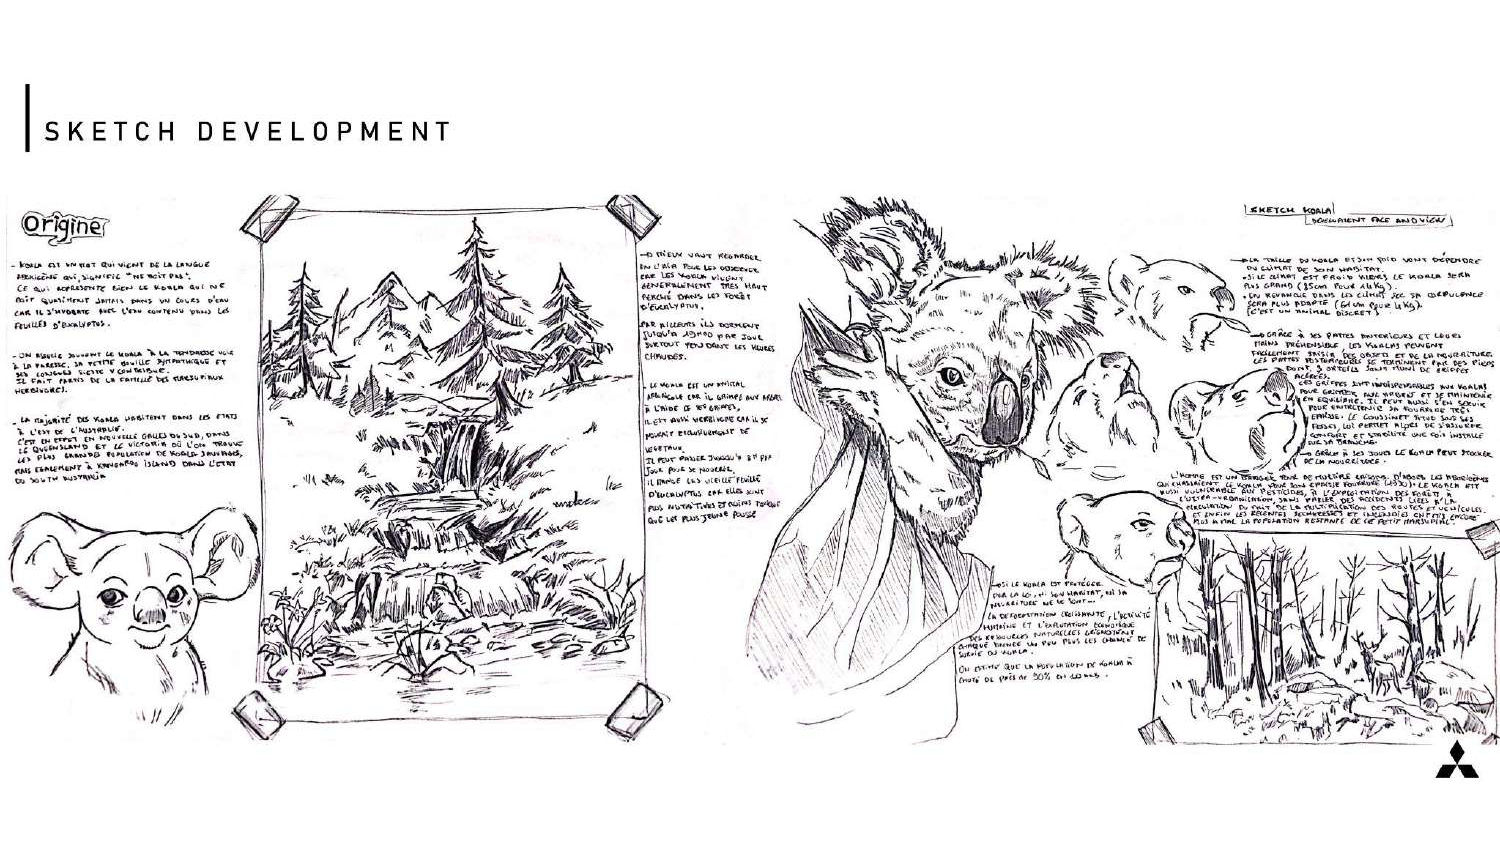 SKETCH DEVELOPMENT
Origine
- KOALA EST UN MOT QUI VIENT DE LA LANGUE
ABORIGÈNE QUI SIGNIFIE "NE BOIT PAS".
CE QUI REPRÉSENTE BIEN LE KOALA QUI NE
BOIT QUASIMENT JAMAIS DANS UN COURS D'EAU
CAR IL S'HYDRATE AVEC L'EAU CONTENU DANS LES
FEUILLES D'EUCALYPTUS.
- ON ASSOCIE SOUVENT LE KOALA À LA TENDRESSE VOIR
À LA PARESSE, SA PETITE BOUILLE SYMPATHIQUE ET
SES LONGUES SIESTE Y CONTRIBUE.
IL FAIT PARTIS DE LA FAMILLE DES MARSUPIAUX
HERBIVORES.
- LA MAJORITÉ DES KOALA HABITENT DANS LES ETATS
À L'EST DE L'AUSTRALIE.
C'EST EN EFFET EN NOUVELLE GALLES DU SUD, DANS
LE QUEENSLAND ET LE VICTORIA OÙ L'ON TROUVE
LES PLUS GRANDES POPULATION DE KOALA SAUVAGES,
MAIS EGALEMENT À KANGAROO ISLAND DANS L'ETAT
DU SOUTH AUSTRALIA
MIEUX VAUT REGARDER
EN L'AIR POUR LES OBSERVER
CAR LES KOALA VIVENT
GENERALEMENT TRES HAUT
PERCHÉ DANS LES FORÊT
D'EUCALYPTUS.
PAR AILLEURS ILS DORMENT
JUSQU'À PAR JOUR
SURTOUT PENDANT LES HEURES
CHAUDES.
- LE KOALA EST UN ANIMAL
ARBRICOLE CAR IL GRIMPE AUX ARBRES
À L'AIDE DE SES GRIFFES,
IL EST AUSSI HERBIVORE CAR IL SE
NOURRIT EXCLUSIVEMENT DE
VEGETAUX.
IL PEUT PASSER JUSQU'À PAR
JOUR POUR SE NOURRIR,
IL MANGE LES VIEILLE FEUILLE
D'EUCALYPTUS CAR ELLES SONT
PLUS NUTRITIVES ET MOINS TOXIQUE
QUE LES PLUS JEUNE POUSSE
SKETCH KOALA
DEVELOPMENT FACE AND VIEW
LA TAILLE DU KOALA ET SON POID SONT DÉPENDRE
DU CLIMAT DE SON HABITAT.
• SI LE CLIMAT EST FROID ALORS LE KOALA SERA
PLUS GRAND
• EN REVANCHE DANS LES CLIMAT SEC SA CORPULENCE
SERA PLUS ADAPTÉ
(C'EST UN ANIMAL DISCRET)
GRÂCE À SES PATTES ANTERIEURES ET LEURS
MAINS PRÉHENSIBLE, LES KOALAS PEUVENT
FACILEMENT SAISIR DES OBJETS ET DE LA NOURRITURE.
LES PATTES POSTERIEURES SE TERMINENT PAR DES PIEDS
DONT 3 ORTEILS SONT MUNI DE GRIFFES
ACÉRÉES.
CES GRIFFES SONT INDISPENSABLES AUX KOALAS
POUR GRIMPER AUX ARBRES ET SE MAINTENIR
EN EQUILIBRE. IL PEUT AUSSI S'EN SERVIR
POUR ENTRETENIR SA FOURRURE TRÈS
EPAISSE. LE COUSSINET SITUÉ SOUS SES
FESSES, LUI PERMET ALORS DE S'ASSURER
CONFORT ET STABILITÉ UNE FOIS INSTALLÉ
SUR SA BRANCHE.
GRÂCE À SES JOUES LE KOALA PEUT STOCKER
DE LA NOURRITURE.
L'HOMME EST UN DANGER POUR DE MULTIPLE RAISONS. D'ABORD LES ABORIGÈNES
QUI CHASSAIENT LE KOALA POUR SON EPAISSE FOURRURE LE KOALA EST
AUSSI VULNERABLE AUX PESTICIDES, À L'EXPLOITATION DES FORÊT, À
L'URBANISATION, SANS PARLER DES ACCIDENTS LIÉES À LA
CIRCULATION DU FAIT DE LA MULTIPLICATION DES ROUTES ET VEHICULES.
ET ENFIN LES RÉCENTES SECHERESSES ET INCENDIES ONT MIS ENCORE
PLUS À MAL LA POPULATION RESTANTE DE CE PETIT MARSUPIAL.
SI LE KOALA EST PROTÉGER
PAR LA LOI, NI SON HABITAT, NI SA
NOURRITURE NE LE SONT...
LA DEFORESTATION CROISSANTE, L'ACTIVITÉ
HUMAINE ET L'EXPLOITATION ECONOMIQUE
DES RESSOURCES NATURELLES GRIGNOTENT
CHAQUE ANNÉE UN PEU PLUS LES CHANCE DE
SURVIE DU KOALA.
ON ESTIME QUE LA POPULATION DE KOALA À
CHUTÉ DE PRÈS DE 90% EN